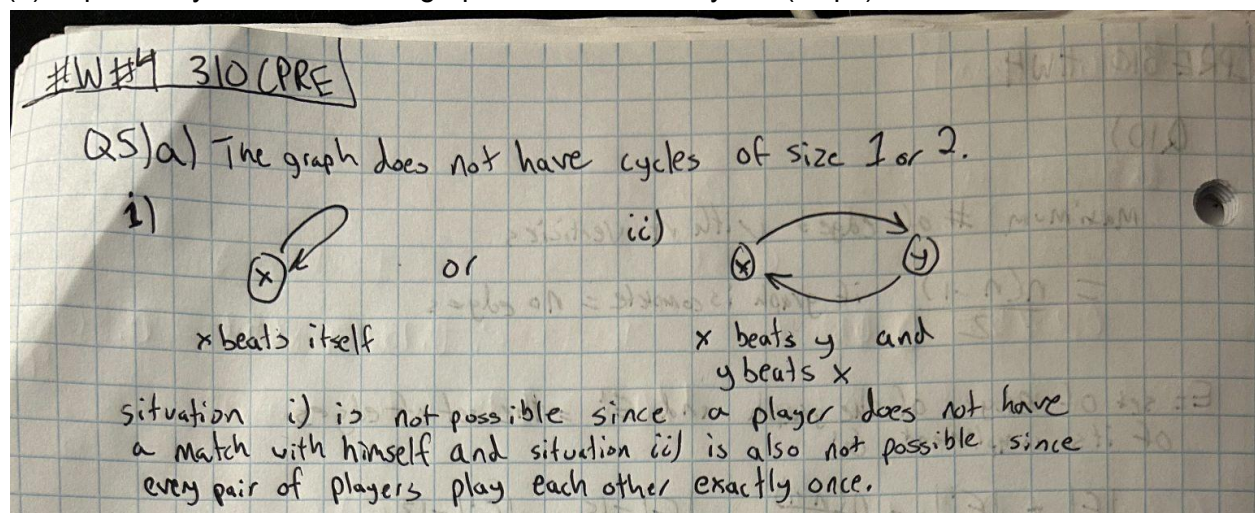 #W#4 310 (PRE)
Q5)a) The graph does not have cycles of size 1 or 2.
i)
ii)
x
or
x
y
x beats itself
x beats y and
y beats x
situation i) is not possible since a player does not have
a match with himself and situation ii) is also not possible since
every pair of players play each other exactly once.